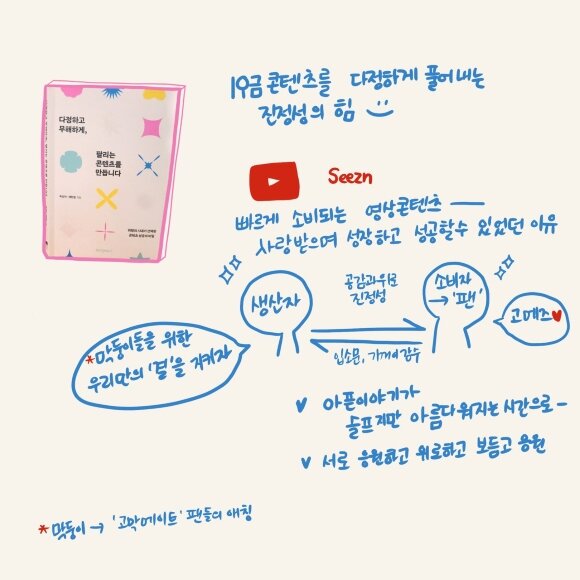 19금 콘텐츠를 다정하게 풀어내는
진정성의 힘
다정하고
무해하게,
팔리는
콘텐츠를
만듭니다
Seezn
빠르게 소비되는 영상콘텐츠 —
사랑받으며 성장하고 성공할수 있었던 이유
생산자
공감과 위로
진정성
소비자
→ '팬'
고메즈♥
입소문, 기꺼이 감수
*막둥이들을 위한
우리만의 '결'을 지키자
아픈이야기가
슬프지만 아름다워지는 시간으로 –
서로 응원하고 위로하고 보듬고 응원
*막둥이 → '고막메이트' 팬들의 애칭